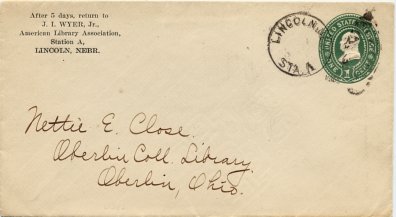 After 5 days, return to
J. I. WYER, Jr.,
American Library Association,
Station A,
LINCOLN, NEBR.
LINCOLN
STA. A
UNITED STATES POSTAGE
1
Nettie E. Close.
Oberlin Coll. Library
Oberlin, Ohio.